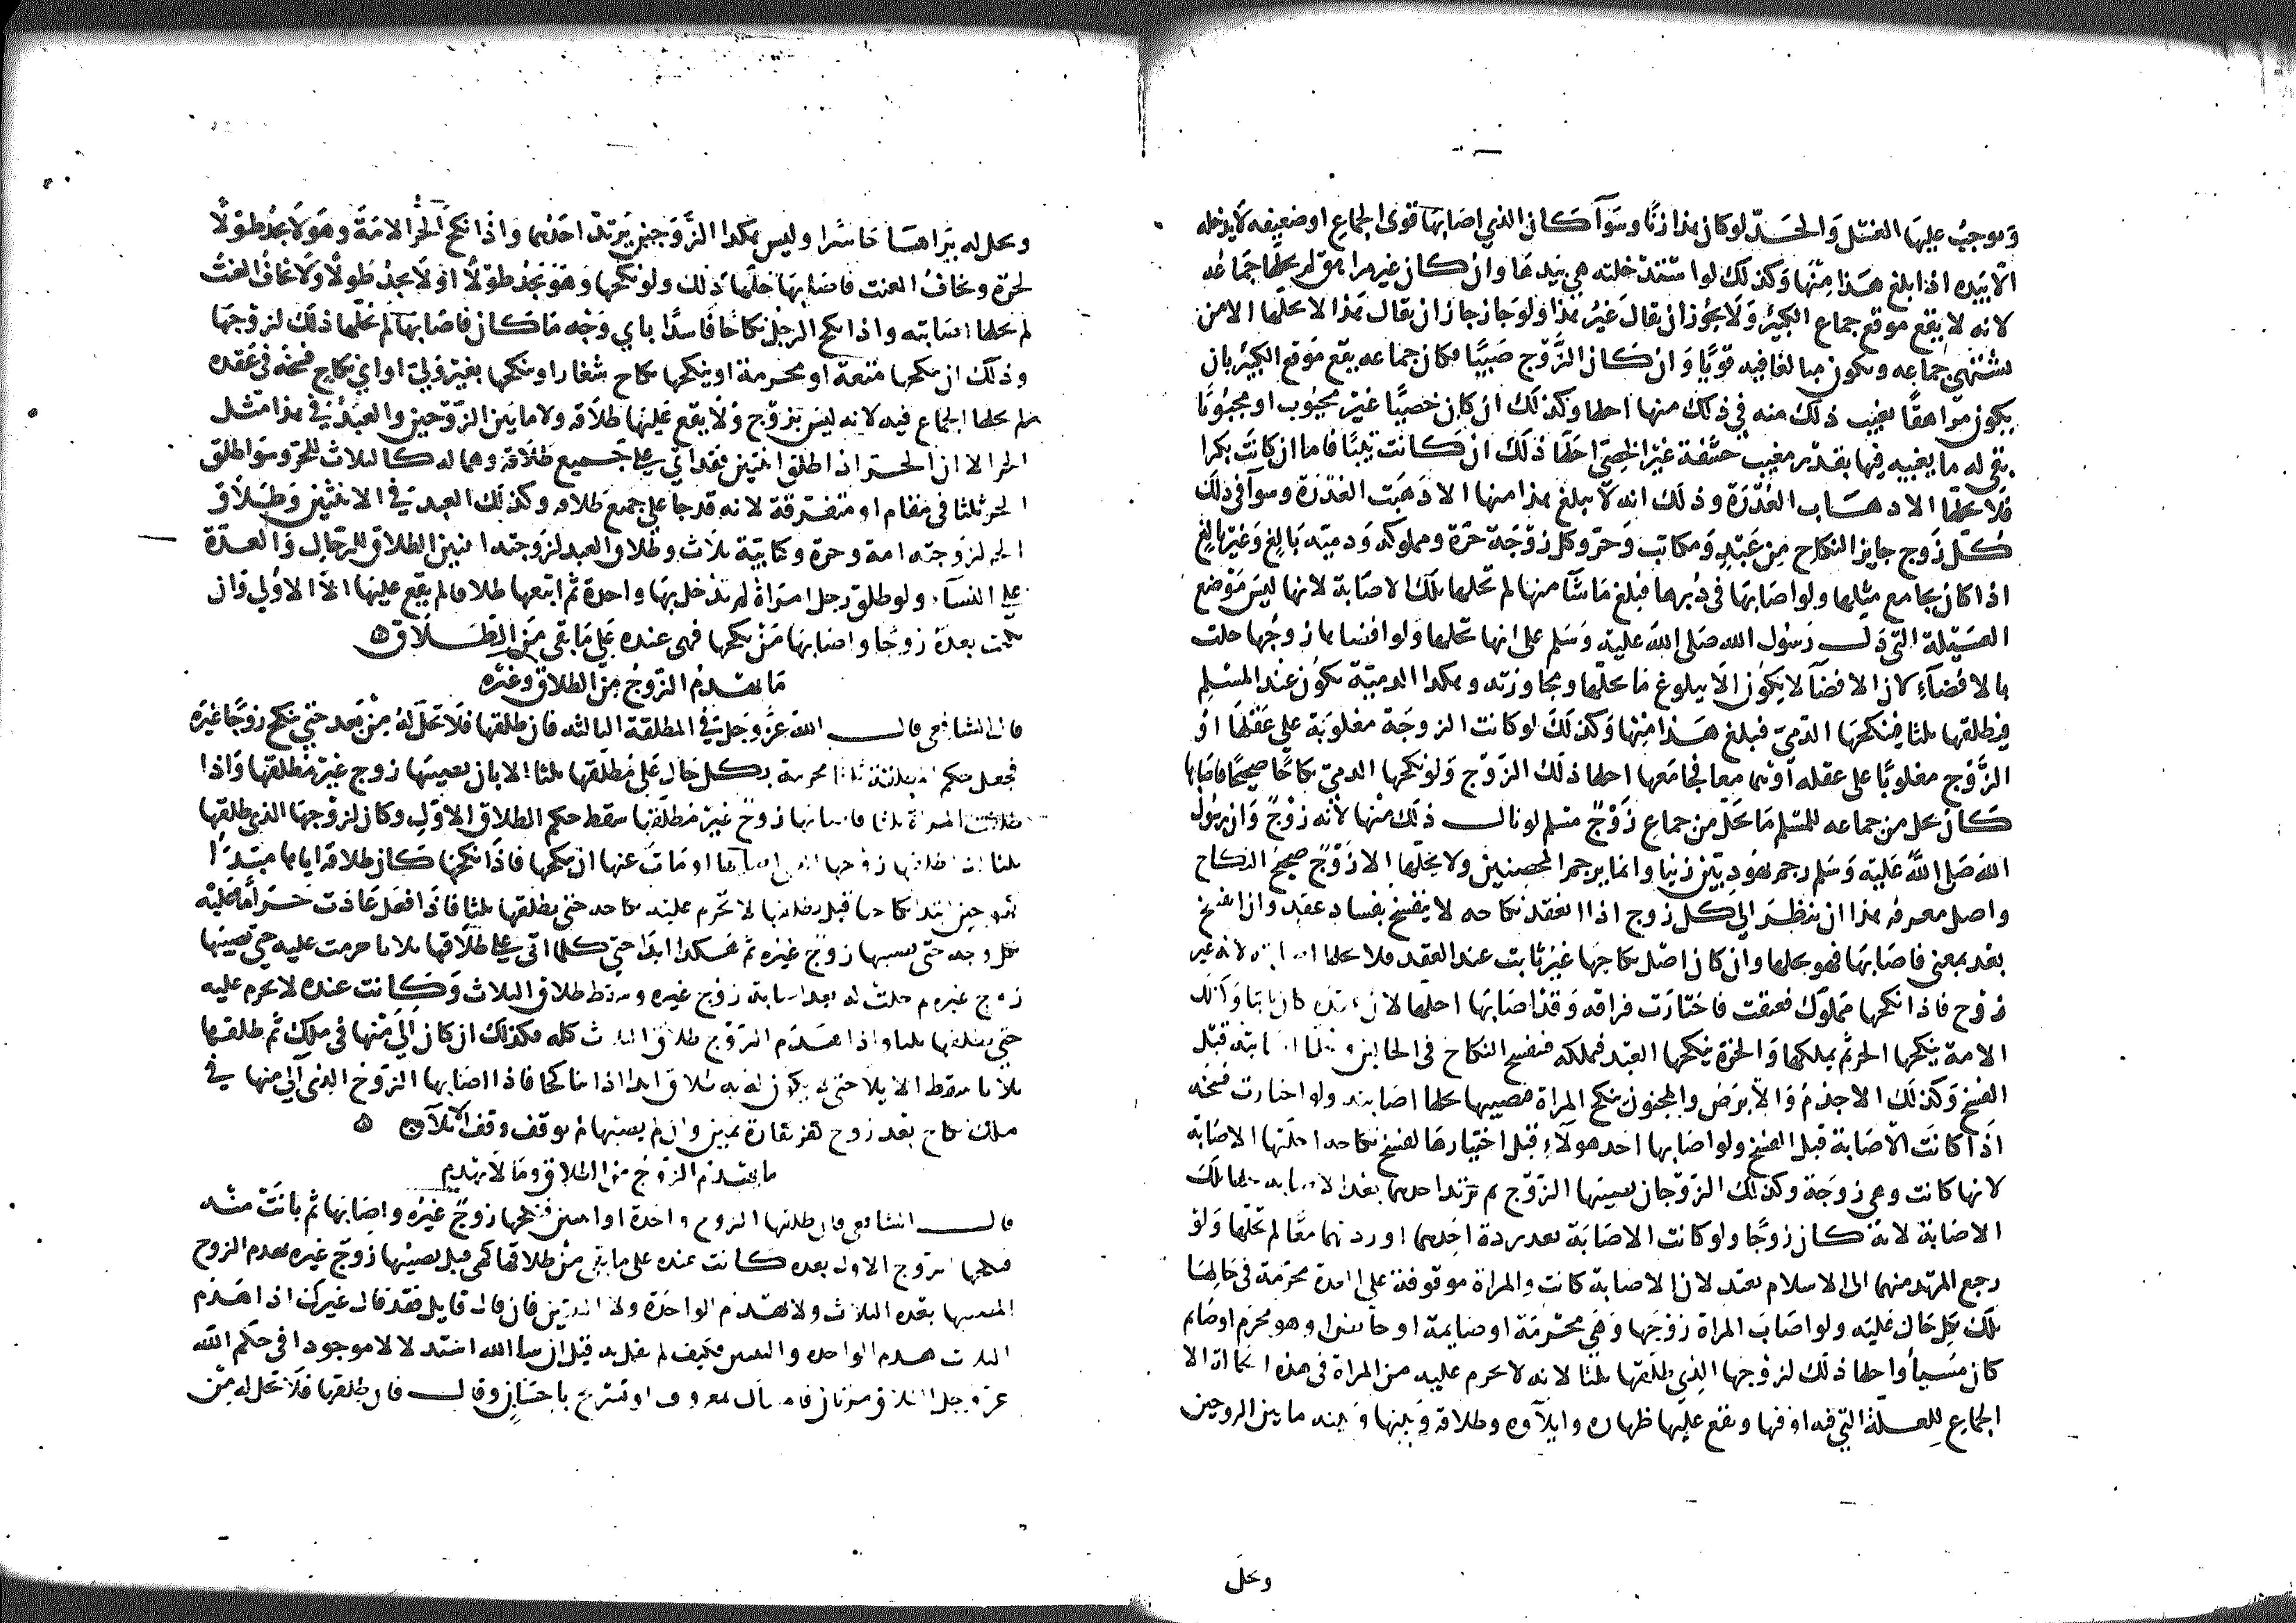 ويوجب عليها الغسل والحد لو كان هذا زنا وسوآ كان الذي اصابها قوى الجماع او ضعيفه لا يدخله
الا بيده اذا بلغ هذا منها وكذلك لو استدخلته هي بيدها وان كان غير مراهق لم يحلها جماعه
لانه لا يقع موقع جماع الكبير ولا يجوز ان يقال غير هذا ولو جاز جاز ان يقال هذا لا يحلها الا من
يشتهي جماعه ويكون مبالغا فيه قويا وان كان الزوج صبيا فكان جماعه يقع موقع الكبير بان
يكون مراهقا يغيب ذلك منه في ذلك منها احلها وكذلك ان كان خصيا غير مجبوب او مجبوبا
بقى له ما يغيبه فيها بقدر مغيب حشفة غير الخصى احلها ذلك ان كانت ثيبا فاما ان كانت بكرا
فلا يحلها الا دهاب العذرة وذلك انه لا يبلغ هذا منها الا ذهبت العذرة وسوآ في ذلك
كل زوج جايز النكاح من عبد ومكاتب وحر وكل زوجة حرة ومملوكه ودميه بالغ وغير بالغ
اذا كان يجامع مثلها ولو اصابها في دبرها فبلغ ما شآ منها لم تحلها تلك الاصابة لانها ليس موضع
العسيلة التي دل رسول الله صلى الله عليه وسلم على انها تحلها ولو افضاها زوجها حلت
بالافضآء لان الافضآ لا يكون الا ببلوغ ما يحلها ومجاوزته وهكدا الدمية تكون عند المسلم
فيطلقها ثلثا فينكحها الدمي فبلغ هذا منها وكذلك لو كانت الزوجة مغلوبة على عقلها او
الزوج مغلوبا على عقله او هما معا فجامعها احلها ذلك الزوج ولو نكحها الدمي نكاحا صحيحا فاصابها
كان يحل من جماعه للمسلم ما يحل من جماع زوج مسلم لو نال ذلك منها لانه زوج وان رسول
الله صلى الله عليه وسلم رجم يهوديين زنيا وانما يرجم المحصنين ولا يحلها الا زوج صحيح النكاح
واصل معرفة هذا ان ينظر الى كل زوج اذا انعقد نكاحه لا ينفسخ بفساد عقد وان انفسخ
بعد بمعنى فاصابها فهو يحلها وان كان اصل نكاحها غير ثابت عند العقد فلا يحلها اصابته لانه غير
زوج فاذا نكحها مملوك فعتقت فاختارت فراقه وقد اصابها احلها لان عقده كان ثابتا وكذلك
الامة ينكحها الحر ثم يملكها والحرة ينكحها العبد فتملكه فينفسخ النكاح في الحالين ويحلها اصابته قبل
الفسخ وكذلك الاجذم والابرص والمجنون ينكح المراة فيصيبها يحلها اصابته ولو اختارت فسخه
اذا كانت الاصابة قبل الفسخ ولو اصابها احد هولآء قبل اختيارها لفسخ نكاحه احلتها الاصابة
لانها كانت وهى زوجة وكذلك الزوجان يصيبها الزوج ثم يرتد احدهما بعد الاصابه يحلها تلك
الاصابة لانه كان زوجا ولو كانت الاصابة بعد ردة احدهما او ردتهما معا لم تحلها ولو
رجع المرتد منهما الى الاسلام بعد لان الاصابة كانت والمراة موقوفة على العدة محرمة في حالها
تلك بكل حال عليه ولو اصاب المراة زوجها وهي محرمة او صايمة او حايض او هو محرم او صايم
كان مسيا واحلها ذلك لزوجها الذي طلقها ثلثا لانه لا يحرم عليه من المراة في هذه الحال الا
الجماع للعلة التي فيه او فيها ويقع عليها ظهاره وايلآوه وطلاقه وبينها وبينه ما بين الزوجين
ويحل
ويحل له يراها حاسرا وليس هكدا الزوج حين يرتد احدهما واذا نكح الحر الامة وهو لا يجد طولا
لحرة ويخاف العنت فاصابها حلها ذلك ولو نكحها وهو يجد طولا او لا يجد طولا ولا يخاف العنت
لم يحلها اصابته واذا نكح الرجل نكاحا فاسدا باي وجه ما كان فاصابها لم يحلها ذلك لزوجها
وذلك ان ينكحها متعة او محرمة او ينكحها نكاح شغار او ينكحها بغير ولي او اي نكاح فسخه في عقده
لم يحلها الجماع فيه لانه ليس بزوج ولا يقع عليها طلاقه ولا ما بين الزوجين والعبد في هذا مثل
الحر الا ان الحر اذا طلق اثنتين فقد اتى على جميع طلاقه وهما له كالثلاث للحر وسوا طلق
الحر ثلثا في مقام او متفرقة لانه قد جا على جميع طلاقه وكذلك العبد في الاثنتين وطلاق
الحر لزوجته امة وحرة وكتابية ثلاث وطلاق العبد لزوجته اثنين الطلاق للرجال والعدة
على النسآء ولو طلق رجل امراة لم يدخل بها واحدة ثم اتبعها طلاقا لم يقع عليها الا الاولى وان
نكحت بعده زوجا واصابها ثم نكحها فهى عنده على ما بقى من الطلاق
ما يهدم الزوج من الطلاق وغيره
قال الشافعي قال الله عز وجل في المطلقة الثالثه فان طلقها فلا تحل له من بعد حتى تنكح زوجا غيره
فجعل حكم المطلقة ثلثا محرمة بكل حال على مطلقها ثلثا الا بان يصيبها زوج غير مطلقها واذا
طلقت المراة ثلثا فاصابها زوج غير مطلقها سقط حكم الطلاق الاول وكان لزوجها الذي طلقها
ثلثا اذا طلقها زوجها الذي اصابها او مات عنها ان ينكحها فاذا نكحها كان طلاقه اياها مبتدا
كهو حين ابتدا نكاحها قبل يطلقها لا تحرم عليه نكاحه حتى يطلقها ثلثا فاذا فعل عادت حراما عليه
بكل وجه حتى يصيبها زوج غيره ثم هكدا ابدا حتى كلما اتى على طلاقها ثلاثا حرمت عليه حتى يصيبها
زوج غيره ثم حلت له بعد اصابة زوج غيره وسقط طلاق الثلاث وكانت عنده لا يحرم عليه
حتى يطلقها ثلثا واذا هدم الزوج طلاق الثلاث كله فكذلك ان كان الى منها في ملك ثم طلقها
ثلاثا سقط الايلا حتى لا يكون له به طلاق ابدا اذا تناكحا فاذا اصابها الزوج الذي الى منها في
ملك نكاح بعد زوج كفر كفارة يمين وان لم يصبها لم يوقف وقف الايلآ
ما يهدم الزوج من الطلاق وما لا يهدم
قال الشافعي فان طلقها الزوج واحدة او اثنتين فنكحها زوج غيره واصابها ثم بانت منه
فنكحها الزوج الاول بعده كانت عنده على ما بقى من طلاقها كهى قبل يصيبها زوج غيره يهدم الزوج
المصيبها بعده الثلاث ولا يهدم الواحدة ولا الثنتين فان قال قايل فقد قال غيرك اذا هدم
الثلاث هدم الواحده والثنتين فكيف لم تقل به قيل ان شا الله استدلالا موجودا في حكم الله
عز وجل الطلاق مرتان فامساك بمعروف او تسريح باحسان وقال فان طلقها فلا تحل له من